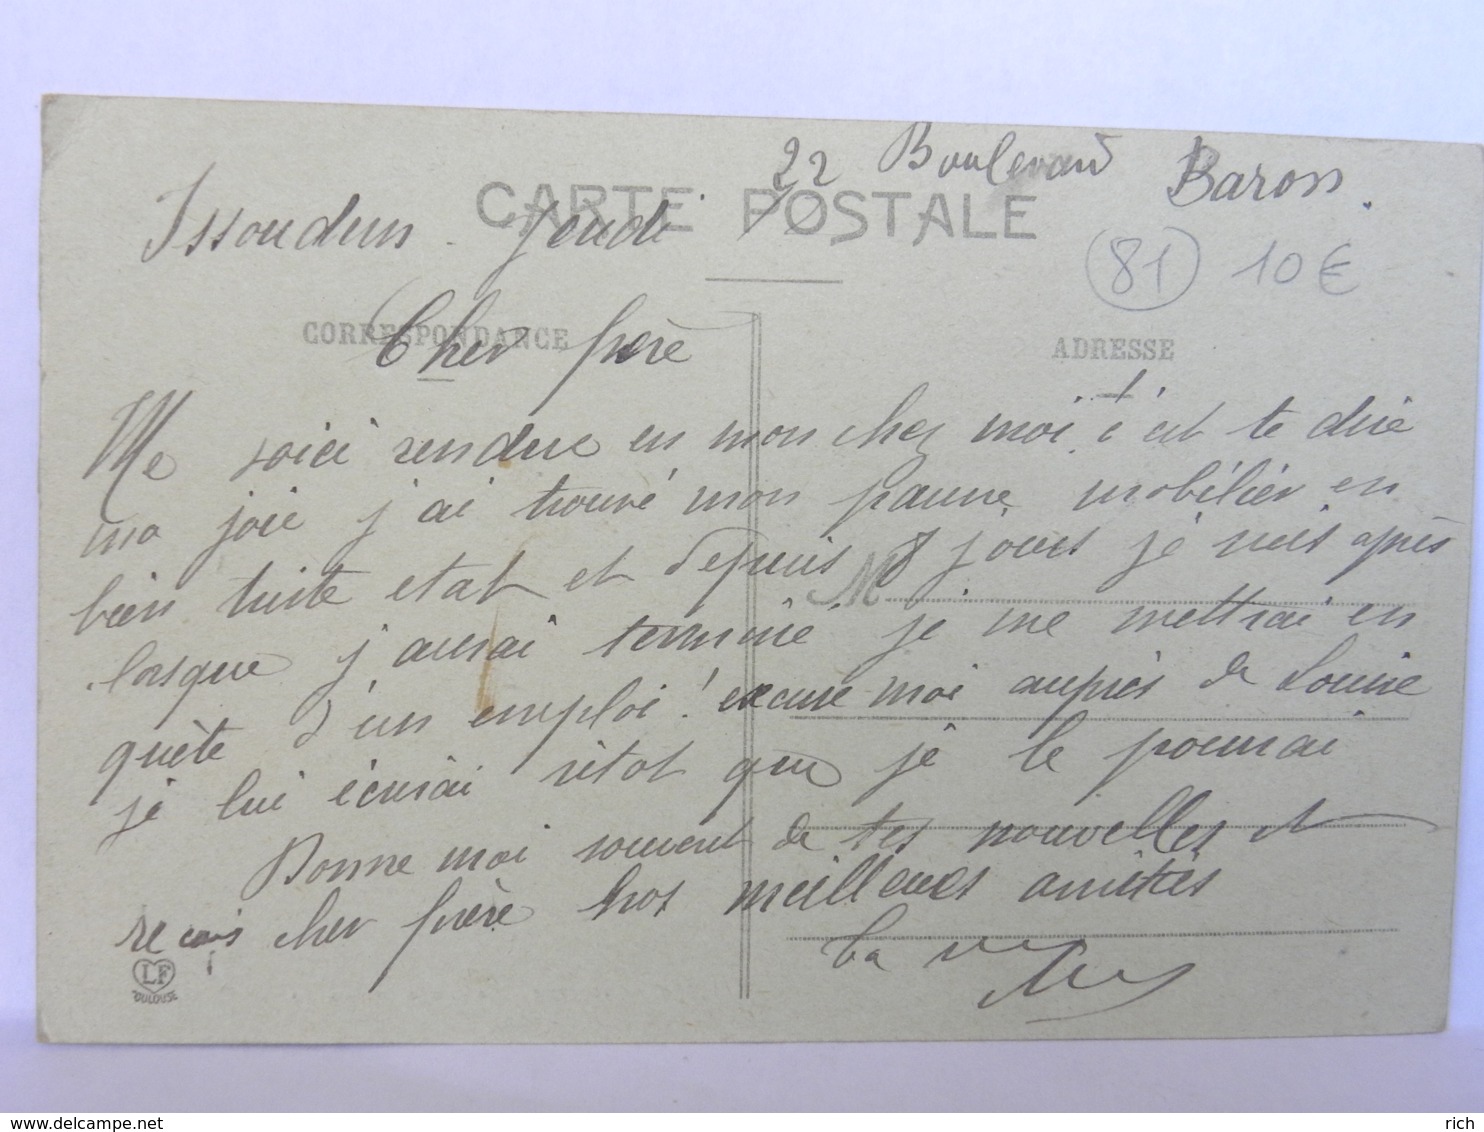 22 Boulevard Baron.
CARTE POSTALE
Issoudun Jeudi
(81) 10€
CORRESPONDANCE
ADRESSE
Cher frère
Me voici rendue en mon chez moi, c'est te dire
ma joie j'ai trouvé mon pauvre mobilier en
bien triste etat et depuis 8 jours je suis après
M
lorsque j'aurai terminé je me mettrai en
quète d'un emploi! excuse moi auprès de Louise
je lui écrirai sitot que je le pourrai
Donne moi souvent de tes nouvelles et
reçois cher frère nos meilleures amitiés
Ta
LF
TOULOUSE
www.delcampe.net
rich